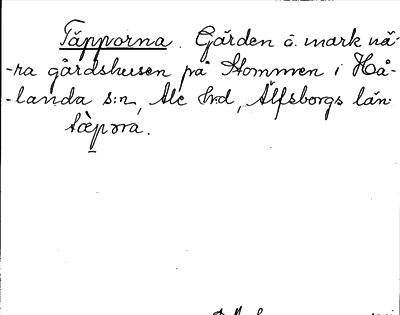 Täpporna. Gården å mark nä-
-ra gårdshusen på Stommen i Hå-
-landa s:n, Ale hrd, Älfsborgs län
tæ̱pora.